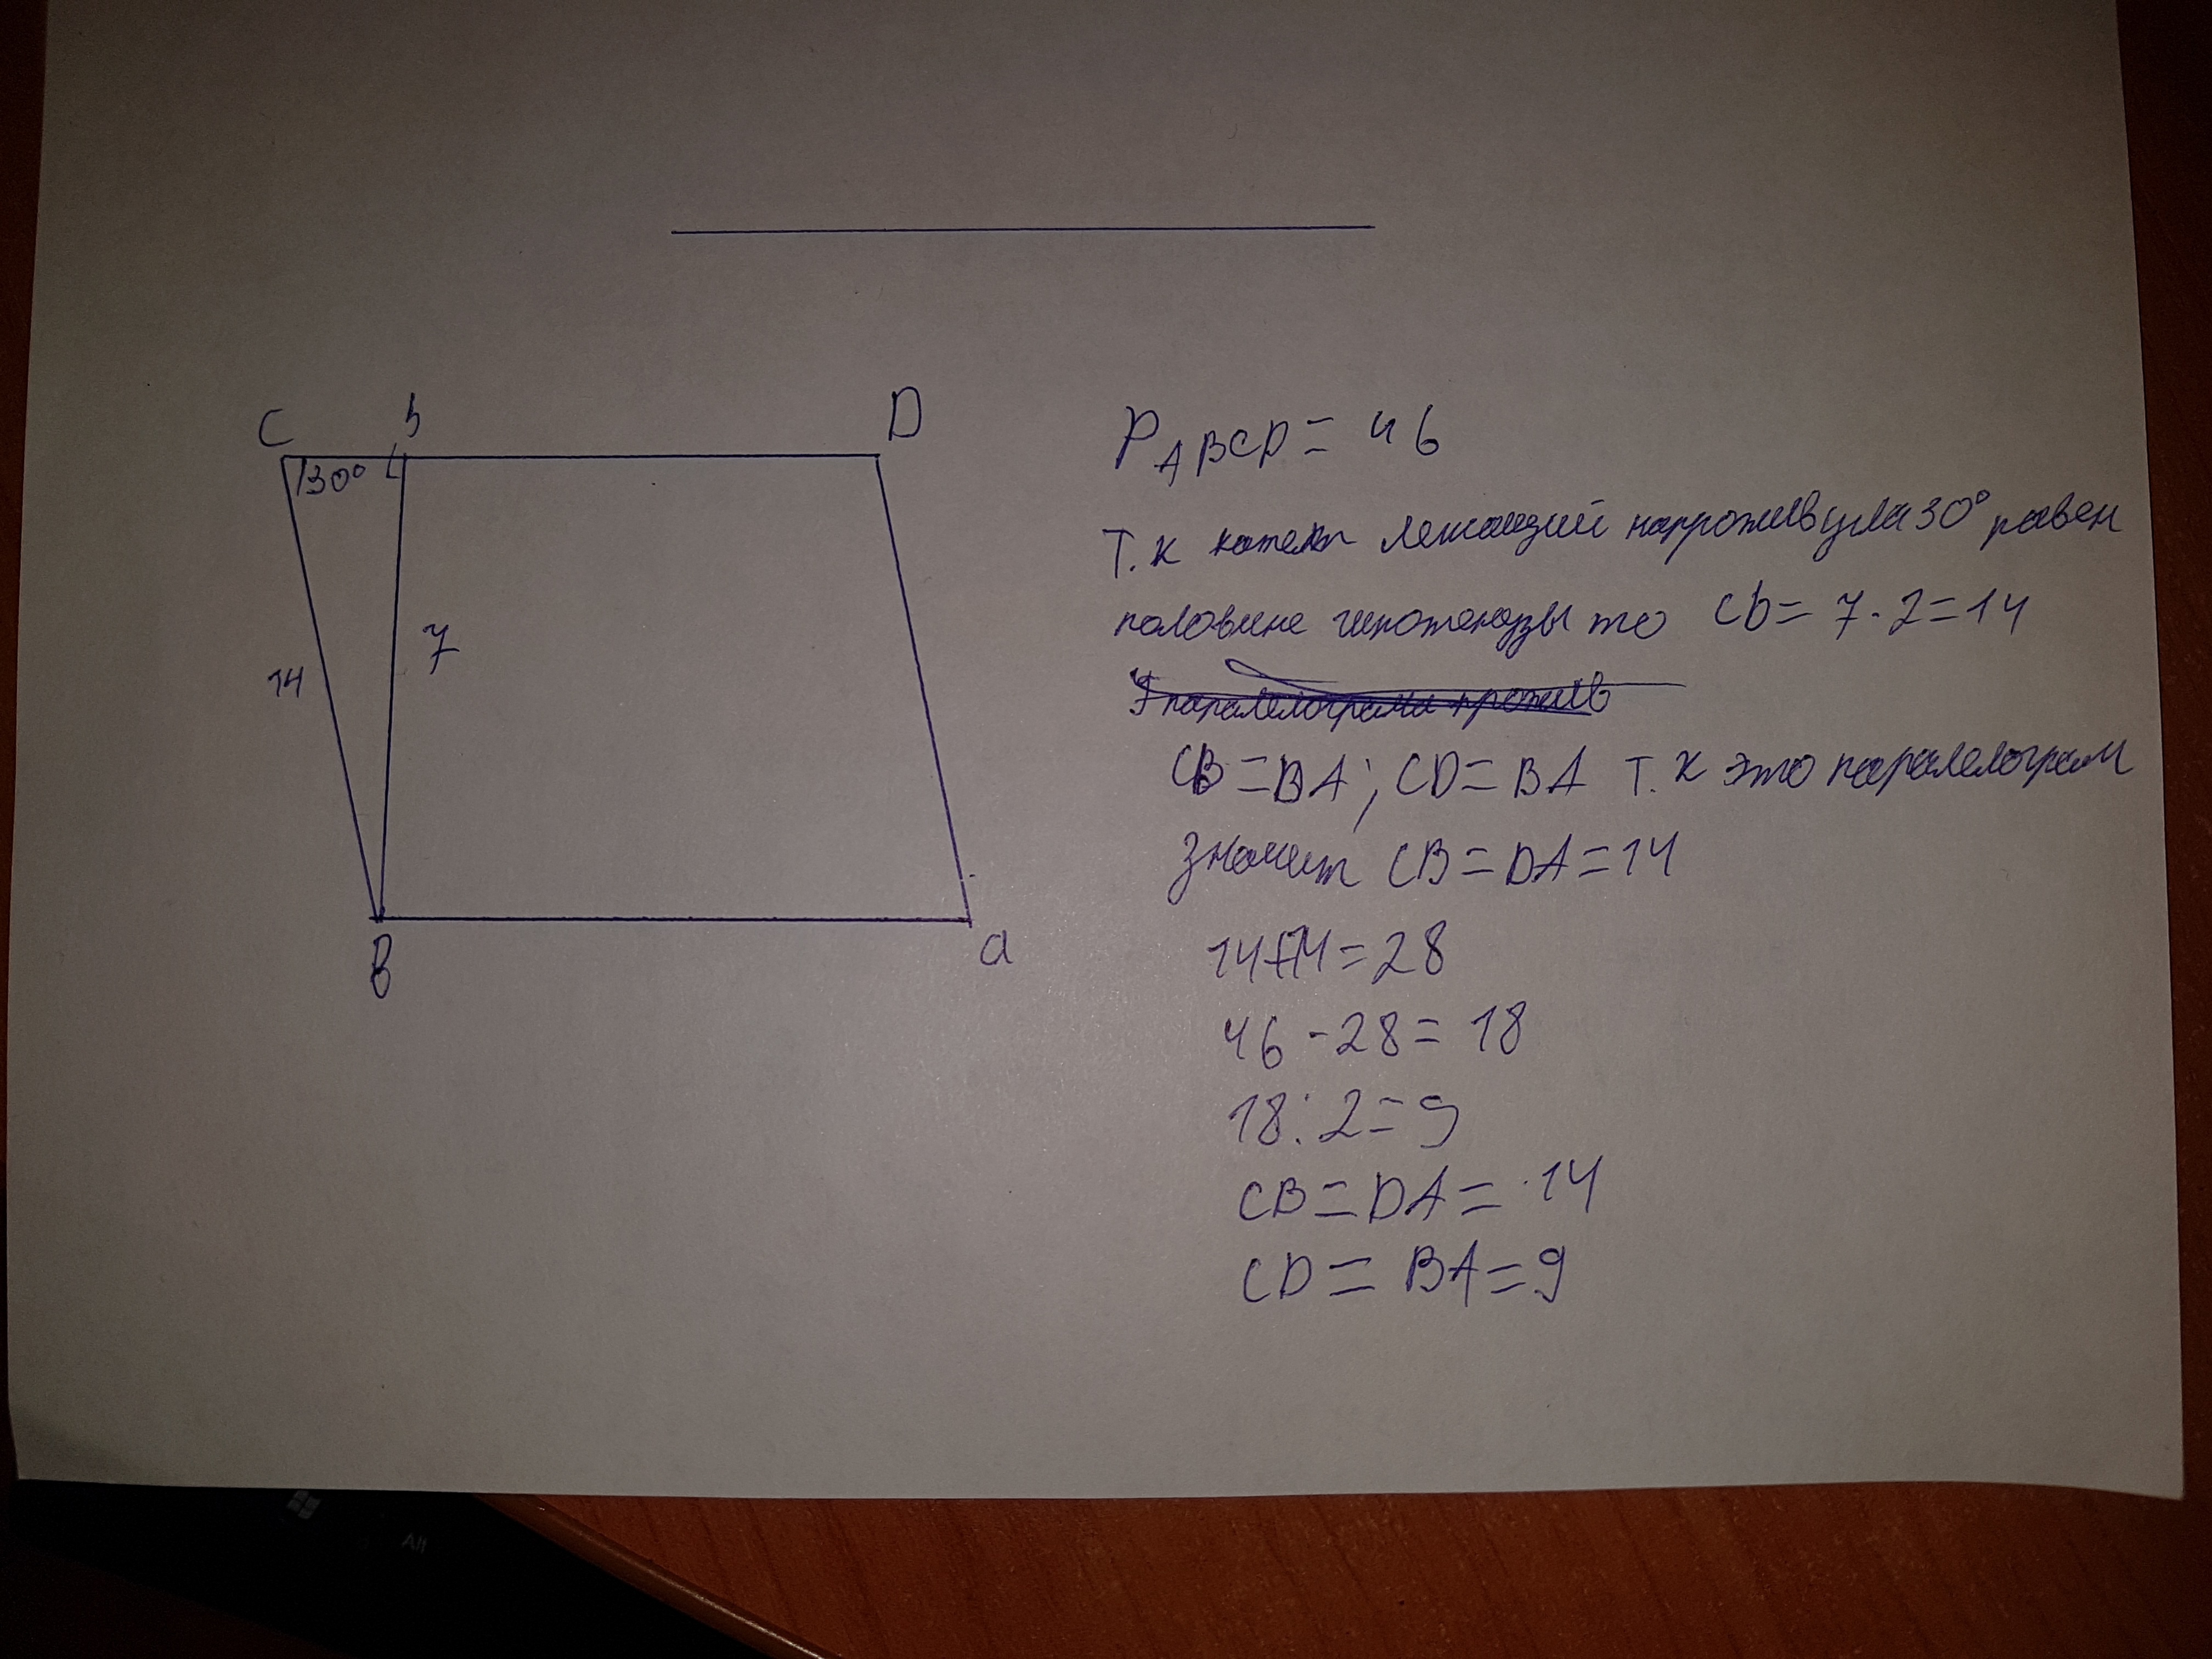 C h D
30°
14
7
B a
P ABCD = 46
Т.к катет лежащий напротив угла 30° равен
половине гипотенузы то Cb = 7 · 2 = 14
CB = BA ; CD = BA т.к это паралелограм
значит CB = DA = 14
14 + 14 = 28
46 - 28 = 18
18 : 2 = 9
CB = DA = 14
CD = BA = 9
Alt